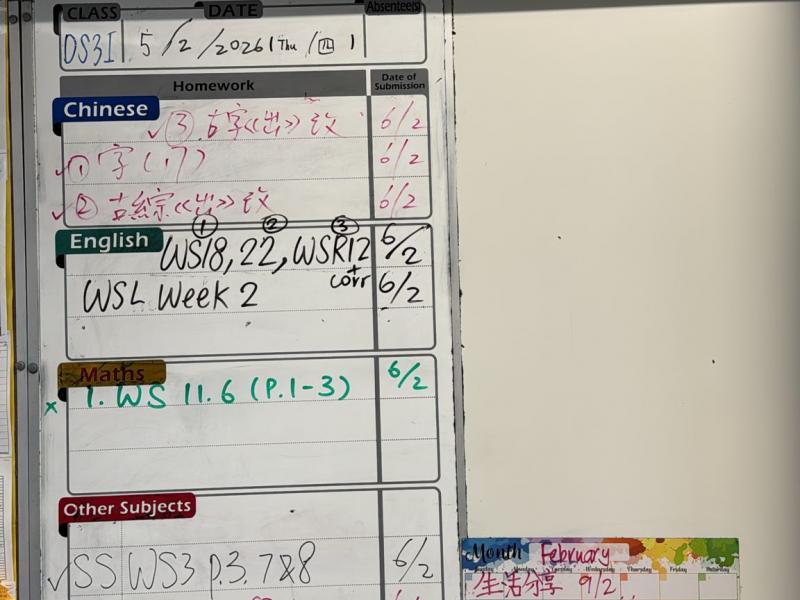 CLASS DATE Absentee(s)
DS3I 5/2/2026 Thu /四
Homework Date of Submission
Chinese
✓③ 古字《出》改 6/2
✓① 字(17) 6/2
✓② 古綜《出》改 6/2
English
① ② ③
WS18, 22, WSR12 6/2
+ corr
WSL Week 2 6/2
Maths
x 1. WS 11.6 (P.1-3) 6/2
Other Subjects
✓SS WS3 p.3, 7&8 6/2
Month February
Monday Wednesday Thursday Friday Saturday
生活分享 9/2